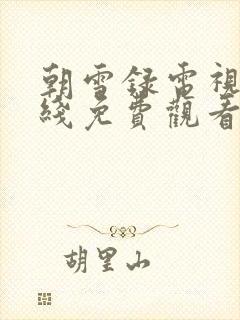 朝雪録電視
綫免費觀看
胡里山